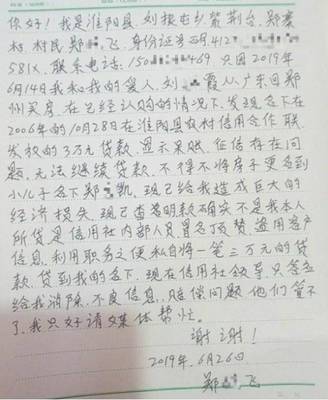 你好!我是淮阳县刘振屯乡紫荆台郑寨
村村民郑飞,身份证号码412
581X 联系电话:150469 只因2019年
6月14号我和我的爱人,刘霞从广东回郑
州买房,在已经认购的情况下,发现名下在
2006年的10月28日在淮阳县农村信用合作联
发放的3万元贷款,显示呆账,征信存在问
题,无法继续贷款,不得不将房子更名到
小儿子名下郑凯,现已给我造成巨大的
经济损失,现已查明款确实不是我本人
所贷是信用社内部人员冒名顶替盗用客户
信息,利用职务之便私自将一笔三万元的贷
款,贷到我的名下,现在信用社领导,只答应
给我消除,不良信息,赔偿问题他们管不
了,我只好请媒体帮忙。
谢谢!
2019年,6月26日
郑飞